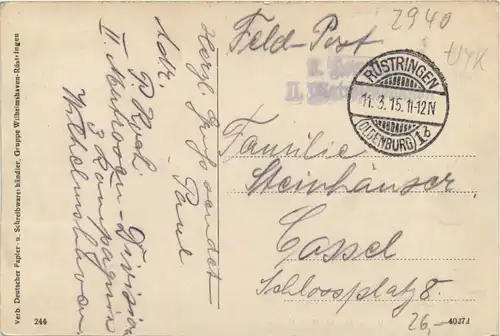 2940
Feld-Post
RÜSTRINGEN
11.3.15.11-12N
(OLDENBURG) 1d
Familie
Steinhäuser,
Cassel
Schlossplatz 8.
26,-
40371
Herzl. Gruß sendet
Paul
Adr.
P. Koch
II. Matrosen-Division
3 Kompagnie
Wilhelmshaven.
Verb. Deutscher Papier- u. Schreibwarenhändler, Gruppe Wilhelmshaven-Rüstringen
244